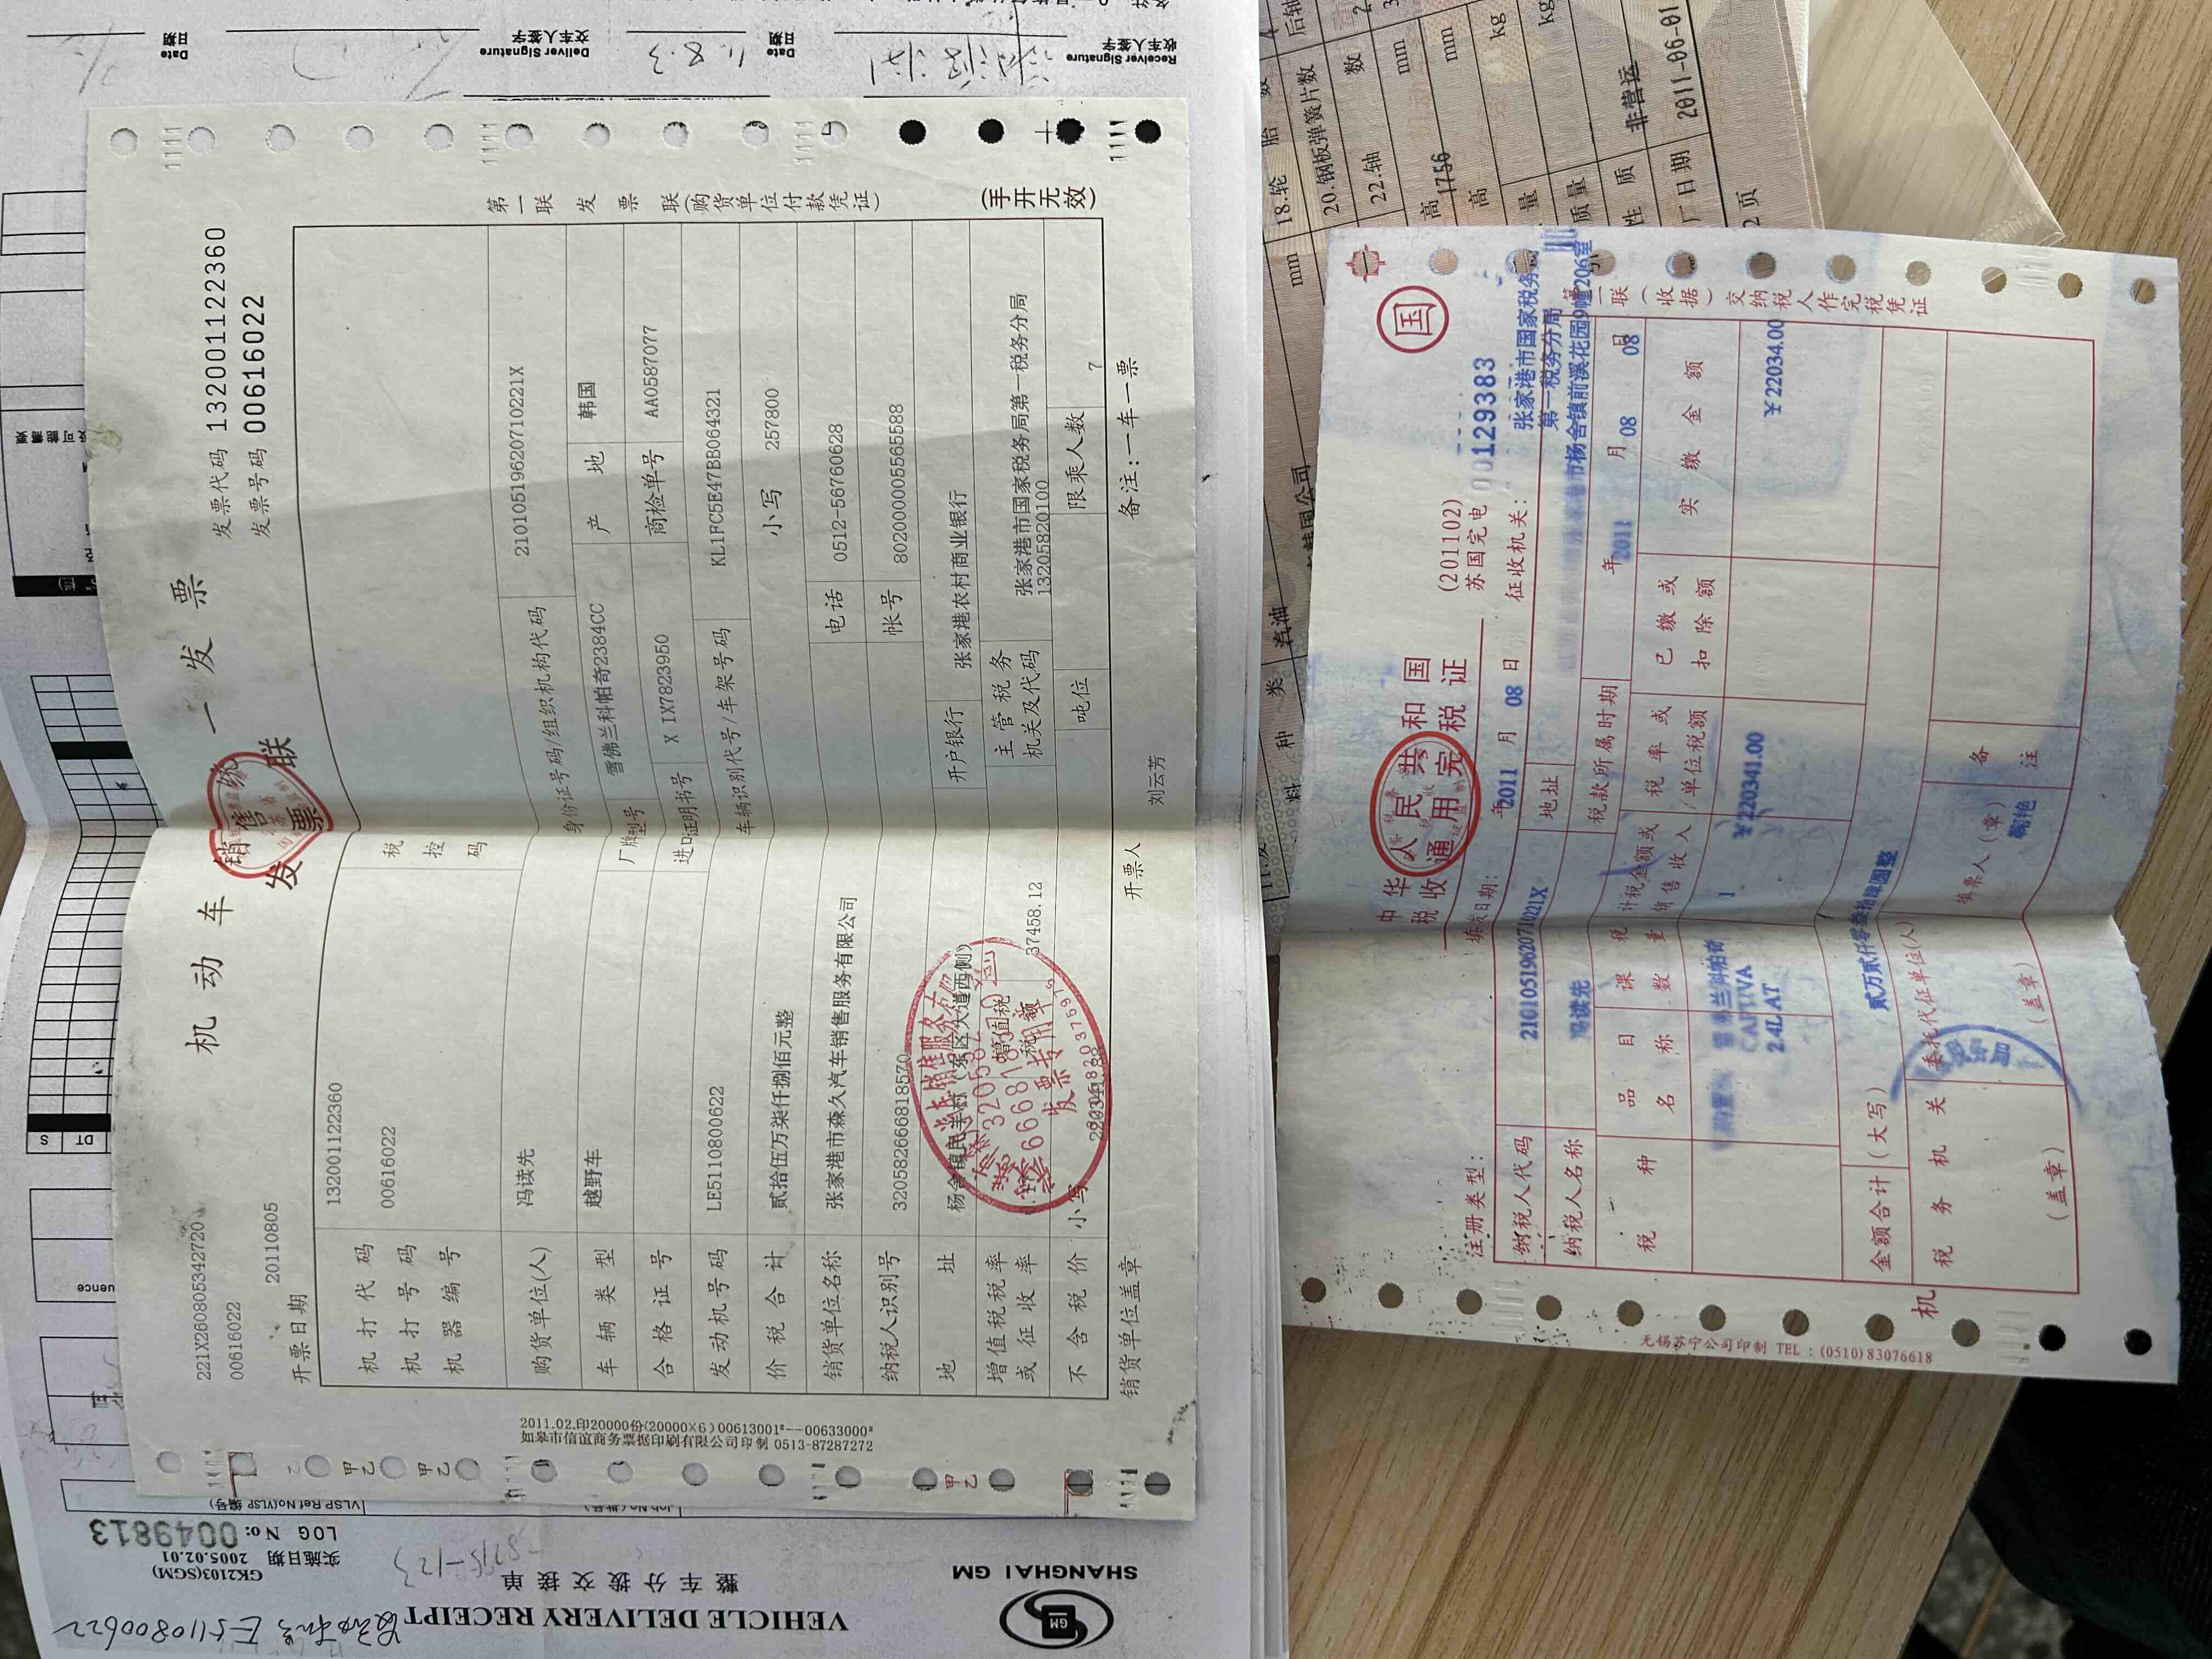 机动车销售统一发票
发票联
发票代码 132001122360
发票号码 00616022
221X260805342720
00616022
开票日期 20110805
机打代码 132001122360
机打号码 00616022
机器编号
税控码
购货单位(人) 冯读先 身份证号码/组织机构代码 21010519620710221X
车辆类型 越野车 厂牌型号 雪佛兰科帕奇2384CC 产地 韩国
合格证号 进口证明书号 X IX7823950 商检单号 AA0587077
发动机号码 LE5110800622 车辆识别代号/车架号码 KL1FC5E47BB064321
价税合计 贰拾伍万柒仟捌佰元整 小写 257800
销货单位名称 张家港市森久汽车销售服务有限公司 电话 0512-56760628
纳税人识别号 320582666818570 帐号 802000005565588
地址 杨舍镇民丰村(东区大道西侧) 开户银行 张家港农村商业银行
增值税税率或征收率 增值税税额 37458.12 主管税务机关及代码 张家港市国家税务局第一税务分局 13205820100
不含税价 小写 吨位 限乘人数 7
销货单位盖章 开票人 刘云芳 备注:一车一票
第一联 发票联(购货单位付款凭证)
(手开无效)
2011.02.印20000份(20000X6)00613001#--00633000#
如皋市信谊商务票据印刷有限公司印制 0513-87287272
发票专用章
中华人民共和国
税收通用完税证
国
(201102)
苏国完电 00129383
注册类型:
填发日期: 2011年08月08日
征收机关: 张家港市国家税务局第一税务分局
纳税人代码 21010519620710221X 地址
杨舍镇前溪花园9幢206室
纳税人名称 冯读先 税款所属时期 2011年08月08日
税种 品目名称 课税数量 计税金额或销售收入 税率或单位税额 已缴或扣除额 实缴金额
雪弗兰科帕奇
CAPTIVA
2.4L AT
1 ￥220341.00 ￥22034.00
金额合计 (大写) 贰万贰仟零叁拾肆圆整
税务机关
(盖章)
委托代征单位(人)
(盖章)
填票人(章)
备注
第一联(收据)交纳税人作完税凭证
无锡苏宁公司印制 TEL:(0510)83076618
VEHICLE DELIVERY RECEIPT
整车分拨交接单
SHANGHAI GM
GM
GK2103(SGM)
实施日期 2005.02.01
LOG No: 0049813
VLSP Ref.No(VLSP 编号)
发动机号 E5110800622
Receiver Signature
收车人签字
Date
日期
11.8.3
Deliver Signature
交车人签字
Date
日期
18.轮胎数 4
20.钢板弹簧片数
22.轴数 2
后轴
mm
高 1756 mm
kg
非营运
2011-06-01
2页
汽油